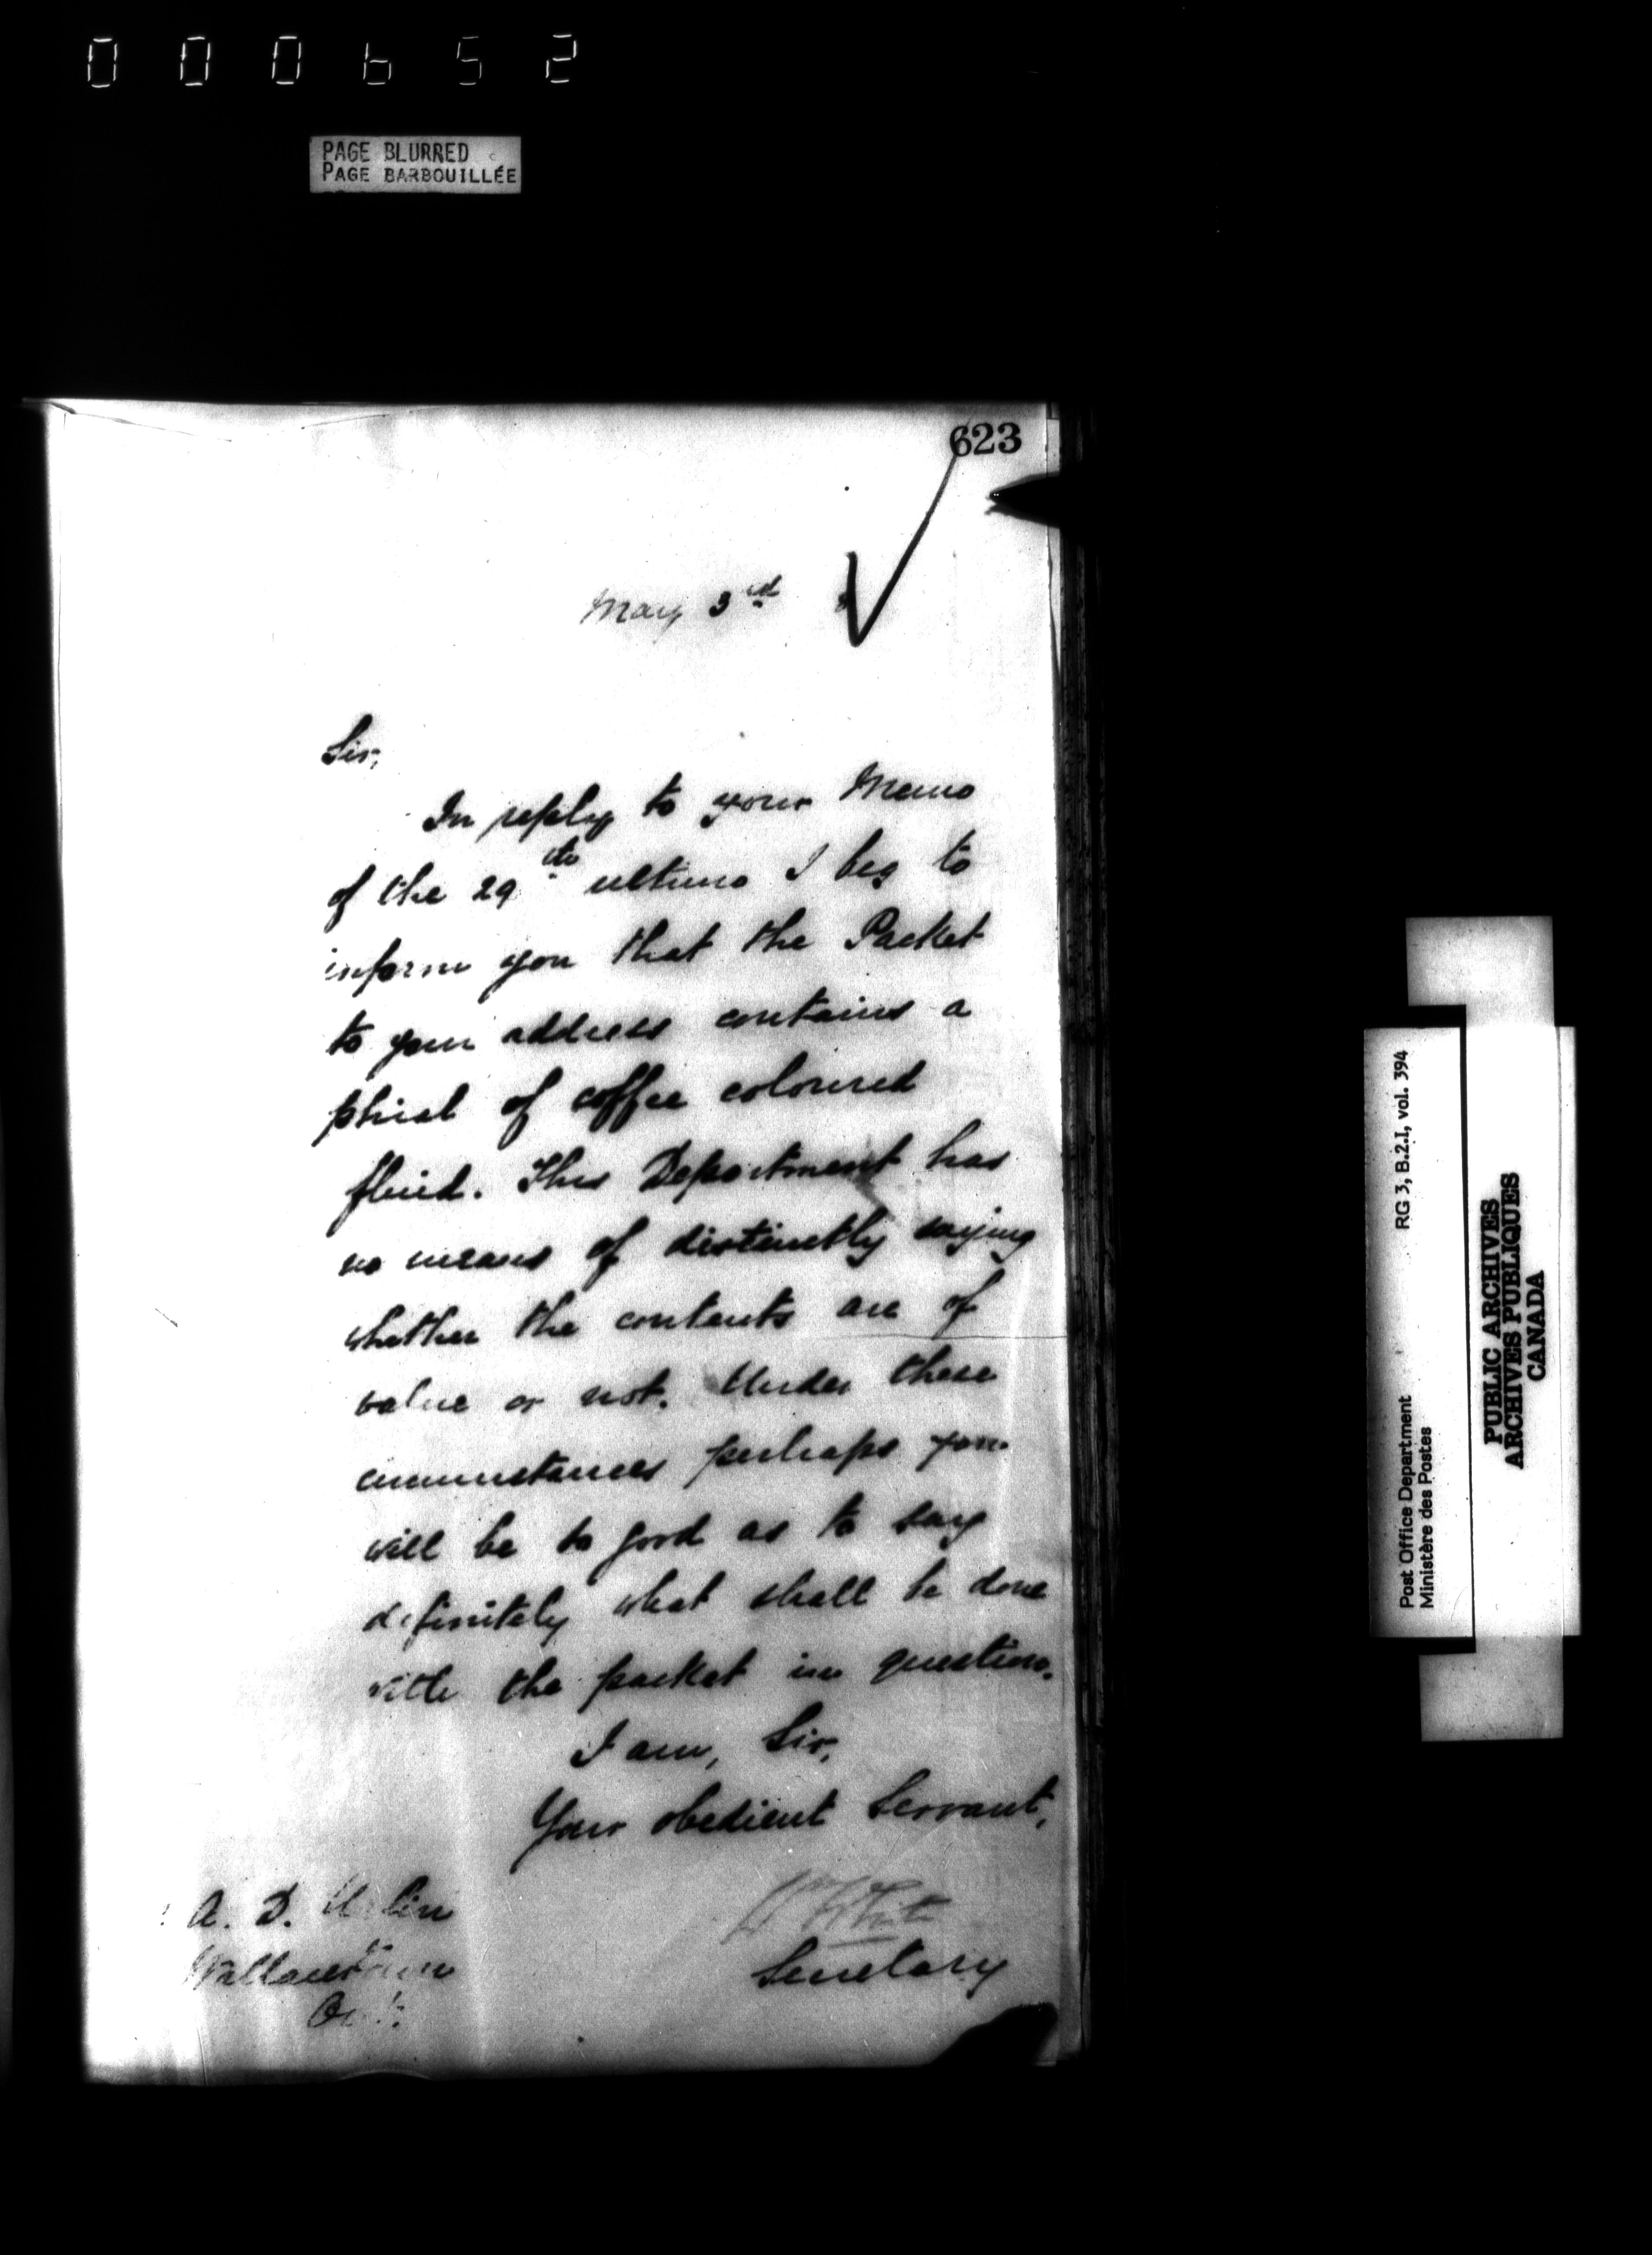 000652
PAGE BLURRED
PAGE BARBOUILLÉE
623
May 3rd
Sir,
In reply to your Memo
of the 29th ultimo I beg to
inform you that the Packet
to your address contains a
phial of coffee coloured
fluid. This Department has
no means of distinctly saying
whether the contents are of
value or not. Under these
circumstances perhaps you
will be so good as to say
definitely what shall be done
with the packet in question.
I am, Sir,
Your obedient Servant,
W White
Secretary
A. D.
Wallacetown
Ont.
Post Office Department RG 3, B.2.I, vol. 394
Ministère des Postes
PUBLIC ARCHIVES
ARCHIVES PUBLIQUES
CANADA